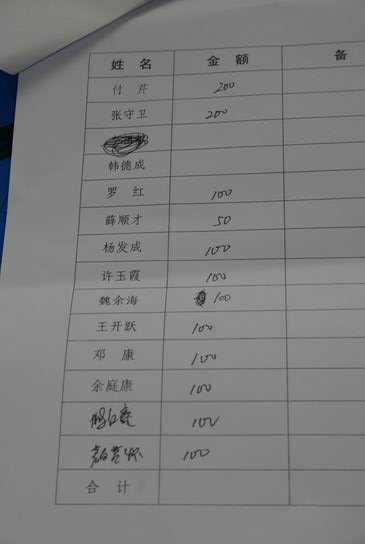 姓 名 金 额 备
付 芹 200
张守卫 200
韩德成
罗 红 100
薛顺才 50
杨发成 100
许玉霞 100
魏余海 100
王开跃 100
邓 康 100
余庭康 100
100
100
合 计